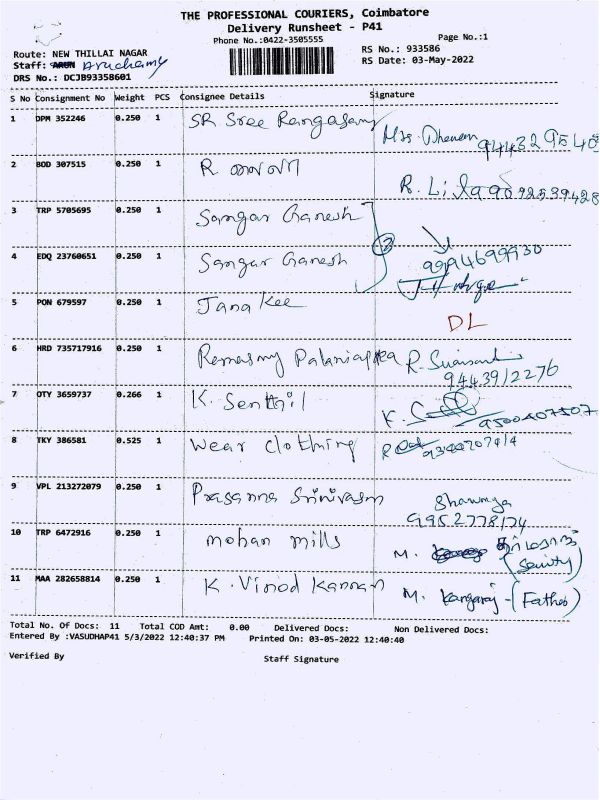 THE PROFESSIONAL COURIERS, Coimbatore
Delivery Runsheet - P41
Phone No.:0422-3505555
Page No.:1
Route: NEW THILLAI NAGAR
RS No.: 933586
Staff: ARUN Aruchamy
RS Date: 03-May-2022
DRS No.: DCJB93358601
S No Consignment No Weight PCS Consignee Details Signature
1 DPM 352246 0.250 1 SR Sree Rengasamy
2 BOD 307515 0.250 1 R 9092539428
3 TRP 5705695 0.250 1 Sangar Ganesh
4 EDQ 23760651 0.250 1 Sangar Ganesh 9994699930
5 PON 679597 0.250 1 Janakee DL
6 HRD 735717916 0.250 1 9443912276
7 OTY 3659737 0.266 1 K. Senthil K. 9500407507
8 TKY 386581 0.525 1 Wear Clothing
9 VPL 213272079 0.250 1 Prasanna Srinivasan
9952778174
10 TRP 6472916 0.250 1 mohan mills M.
11 MAA 282658814 0.250 1 K. Vinod Kannan M. Kangaraj - (Father)
Total No. Of Docs: 11 Total COD Amt: 0.00 Delivered Docs: Non Delivered Docs:
Entered By :VASUDHAP41 5/3/2022 12:40:37 PM Printed On: 03-05-2022 12:40:40
Verified By Staff Signature